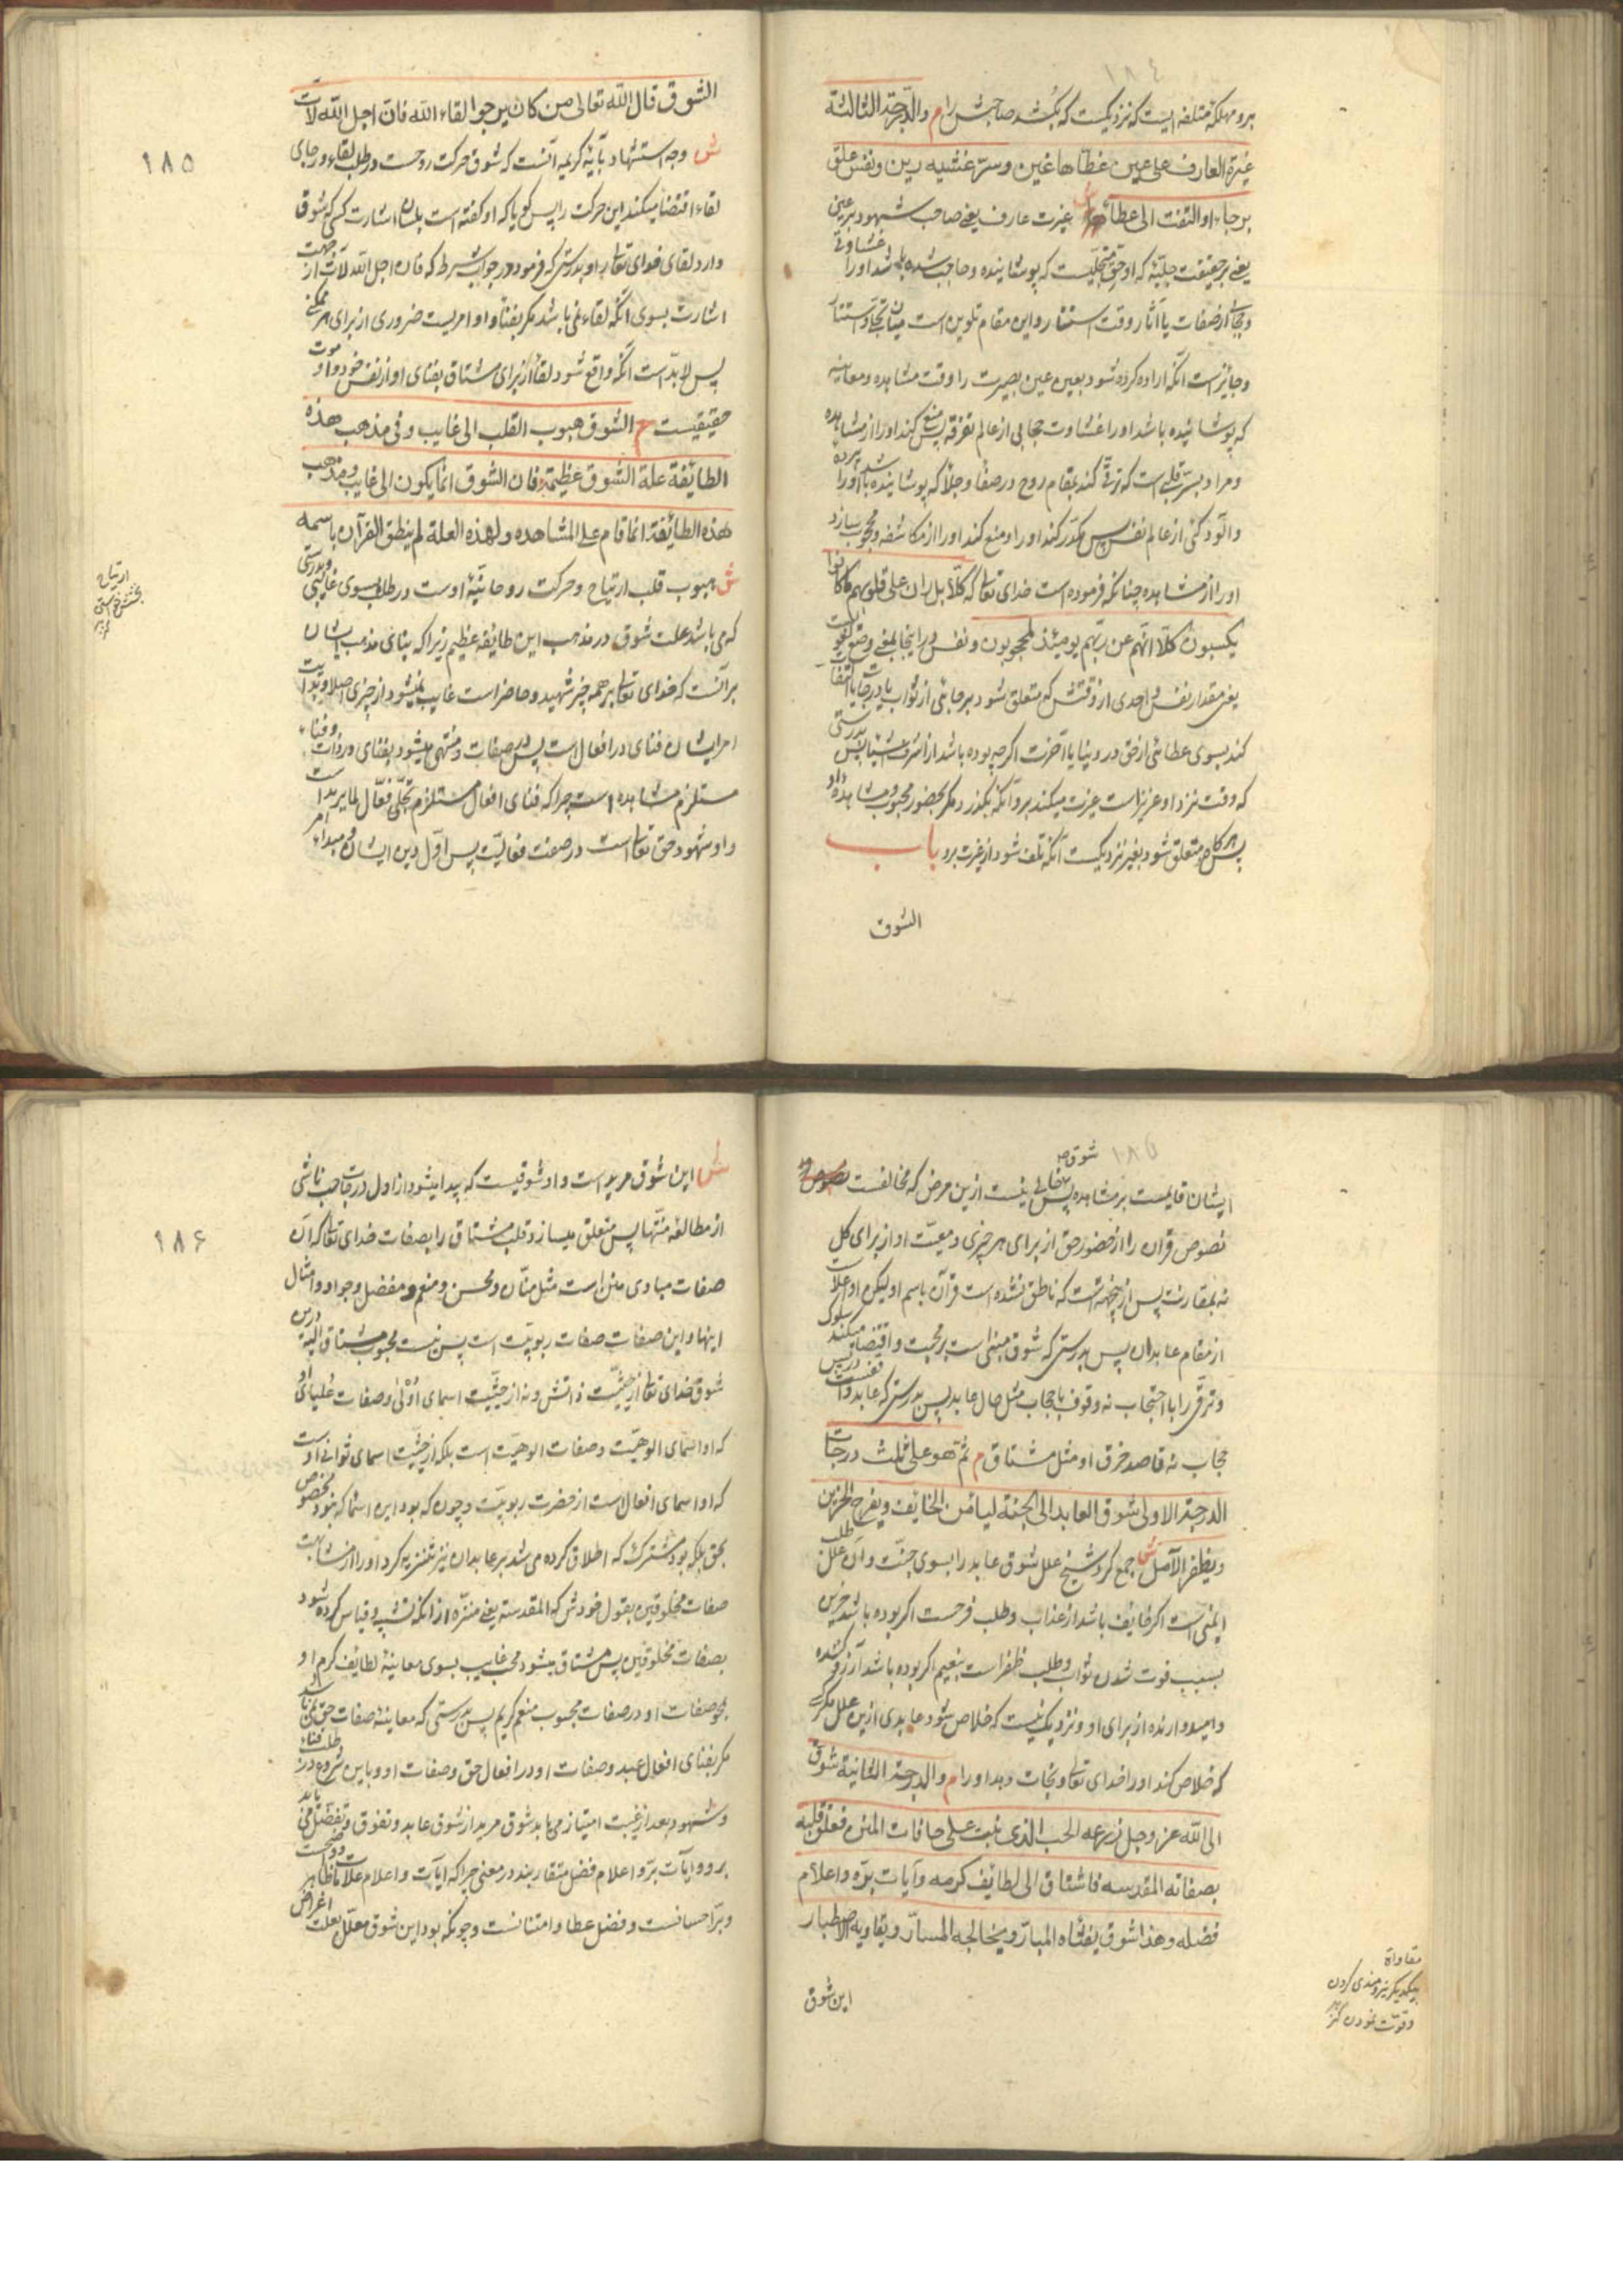 ١٨٤
برو مهلکهٔ متلفه ایست که نزدیکست که بکشد صاحبش را م والدرجة الثالثة
غیرة العارف علی عین غطاها غین وسرّ غشیه رین ونفس علق
برجاء او التفت الی عطاء ش غیرت عارف یعنی صاحب شهود بر عینی
یعنی بر حقیقت جلیّه که او حق متجلیست که پوشاننده وحاجب شده باشد او را غشاوتی
وحجابی از صفات یا آثار وقت استتار واین مقام تلوین است میان تجلی واستتار
وجایز است آنکه اراده کرده شود بعین عین بصیرت را وقت مشاهده ومعاینه
که پوشانیده باشد او را غشاوت حجابی از عالم تفرقه پس منع کند او را از مشاهده
ومراد بسرّ قلبی است که ترقی کند بمقام روح در صفا وجلا که پوشاننده باشد او را پرده
وآلودگی از عالم نفس پس مکدّر کند او را ومنع کند او را از مکاشفه ومحجوب سازد
او را از مشاهده چنانکه فرموده است خدای تعالی که کلّا بل ران علی قلوبهم ما کانوا
یکسبون کلّا انّهم عن ربّهم یومئذ لمحجوبون ونفس در اینجا بمعنی وقتی
یعنی مقدار نفس واحدی از وقتش که متعلق شود برجائی از ثواب یا درجات یا التفات
کند بسوی عطائی از حق در دنیا یا آخرت اگرچه بوده باشد از اشرف اشیا پس بدرستی
که وقت نزد او عزیز است غیرت میکند برو آنکه بگذرد مگر بحضور محبوب ومشاهدهٔ او
پس هرگاه متعلق شود بغیر نزدیکست آنکه تلف شود از غیرت برو باب
الشوق
١٨٥
الشوق قال الله تعالی من کان یرجوا لقاء الله فان اجل الله لآت
ش وجه استشهاد بآیهٔ کریمه آنست که شوق حرکت روحست در طلب لقاء ورجای
لقاء اقتضا میکند این حرکت را پس گویا که او گفته است بلسان اشارت کسی که شوق
دارد لقای خدای تعالی را وبدرستی که فرمود در جواب شرط که فان اجل الله لآت از جهت
اشارت بسوی آنکه لقاء نمی باشد مگر بفنا واو امریست ضروری از برای هر ممکنی
پس لابدّ است آنکه واقع شود لقا از برای مشتاق بفنای او از نفس خود واو موت
حقیقیست م الشوق هبوب القلب الی غایب وفی مذهب هذه
الطایفة علة الشوق عظیمة فان الشوق انّما یکون الی غایب ومذهب
هذه الطایفة انّما قام علی المشاهده ولهذه العلة لم ینطق القرآن باسمه
ش هبوب قلب ارتیاح وحرکت روحانیّهٔ اوست در طلب بسوی غایبی وبدرستی
که می باشد علت شوق در مذهب این طایفه عظیم زیرا که بنای مذهب ایشان
بر آنست که خدای تعالی بر همه چیز شهید وحاضر است غایب نمیشود از چیزی اصلا وبدایت
امر ایشان فنای در افعالست پس در صفات ومنتهی میشود بفنای در ذات وفنا
مستلزم مشاهده است چرا که فنای افعال مستلزم تجلّی فعّال لما یرید است
واو شهود حق تعالی است در صفت فعالیّت پس اوّل دین ایشان ومبداء امر
ارتیاح
١٨٥
شوق
ایشان قایمست بر مشاهده پس خالی نیست ازین مرض که مخالفست
نصوص قرآن را از حضور حق از برای هر چیزی ومعیّت او از برای کل
نه بمقارنت پس ازینجهتست که ناطق نشده است قرآن باسم او لیکن او اعلاست
از مقام عابدان پس بدرستی که شوق مبنی است بر محبت واقتضا میکند سلوک
وترقی را با احتجاب نه وقوف با حجاب مثل حال عابد پس بدرستی که عابد واقفست در پس
حجاب نه قاصد خرق او مثل مشتاق م ثم هو علی ثلث درجات
الدرجة الاولی شوق العابد الی الجنة لیأمن الخایف ویفرح الحزین
ویظفر الآمل ش جمع کرد شیخ علل شوق عابد را بسوی جنّت وآن علل طلب
ایمنی است اگر خایف باشد از عذاب وطلب فرحست اگر بوده باشد حزین
بسبب فوت شدن ثواب وطلب ظفر است بنعیم اگر بوده باشد آرزو کننده
وامیدوارنده از برای او ونزدیک نیست که خلاص شود عابدی ازین علل مگر کسی
که خلاص کند او را خدای تعالی ونجات دهد او را م والدرجة الثانیة شوق
الی الله عز وجل زرعه الحب الذی نبت علی حافات المنن فعلق قلبه
بصفاته المقدسه فاشتاق الی لطایف کرمه وآیات برّه واعلام
فضله وهذا شوق یغشاه المبارّ ویخالجه المسارّ ویقاویه الاصطبار
این شوق
مقاواة
بیکدیگر نیرومندی کردن
وقوت نمودن کنز
١٨۶
ش این شوق مرید است واو شوقیست که پیدا میشود از اول درجات حب ناشی
از مطالعهٔ منّتها پس متعلق میسازد قلب مشتاق را بصفات خدای تعالی که آن
صفات مبادی منن است مثل منّان ومحسن ومنعم ومفضل وجواد وامثال
اینها واین صفات صفات ربوبیّت است پس نیست محبوب مشتاق الیه درین
شوق خدای تعالی از حیثیّت ذاتش ونه از حیثیّت اسمای اوّلی وصفات علیای او
که او اسمای الوهیّت وصفات الوهیّت است بلکه از حیثیّت اسمای ثوانی اوست
که او اسمای افعالست از حضرت ربوبیّت وچون که بود این اسما که نبود مخصوص
بحق بلکه بود مشترک که اطلاق کرده می شد بر عابدان نیز تنزیه کرد او را از مشابهت
صفات مخلوقین بقول خودش که المقدسة یعنی منزّه از آنکه تشبیه وقیاس کرده شود
بصفات مخلوقین پس مشتاق میشود محب غایب بسوی معاینهٔ لطایف کرم او
بمحو صفات او در صفات محبوب منعم کریم پس بدرستی که معاینهٔ صفات حق نمی باشد
مگر بفنای افعال عبد وصفات او در افعال حق وصفات او وباین شروع در طلب فناء
وشهود بعد از غیبت امتیاز می یابد شوق مرید از شوق عابد وتفوق وتفضّل می یابد
برو وآیات برّ واعلام فضل متقاربند در معنی چرا که آیات واعلام علامات
وبرّ احسانست وفضل عطا وامتنانست وچونکه بود این شوق معلّل بعلت اغراض